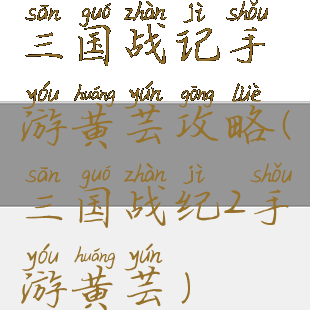 sān guó zhàn jì shǒu
三国战记手
yóu huáng yún gōng lüè
游黄芸攻略(
sān guó zhàn jì shǒu
三国战纪2手
yóu huáng yún
游黄芸)